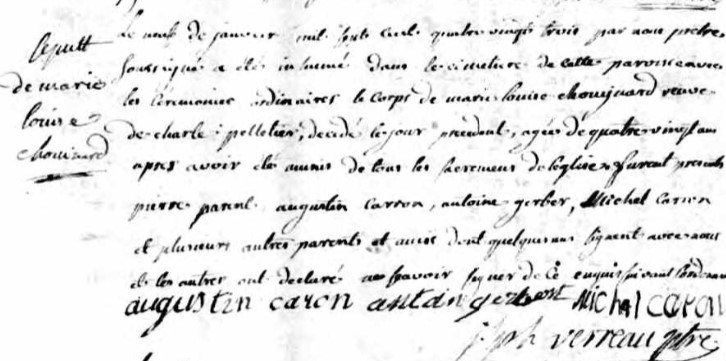 Sepult
de marie
louise
chouinard
Le neuf de janvier mil sept cent quatre vingt trois par nous pretre
soussigné a été inhumé dans le cimetiere de cette paroisse avec
les cérémonies ordinaires le corps de marie louise chouinard veuve
de charle pelletier, décédé le jour precedent, agée de quatre vingt ans
apres avoir été munis de tous les sacremens de leglise furent presents
pierre parent augustin carron, antoine gerber, Michel caron
et plusieurs autres parents et amis dont quelques uns signent avec nous
et les autres ont declaré ne savoir signer de ce enquis suivant
augustin caron antoin Michel caron
verreau ptre